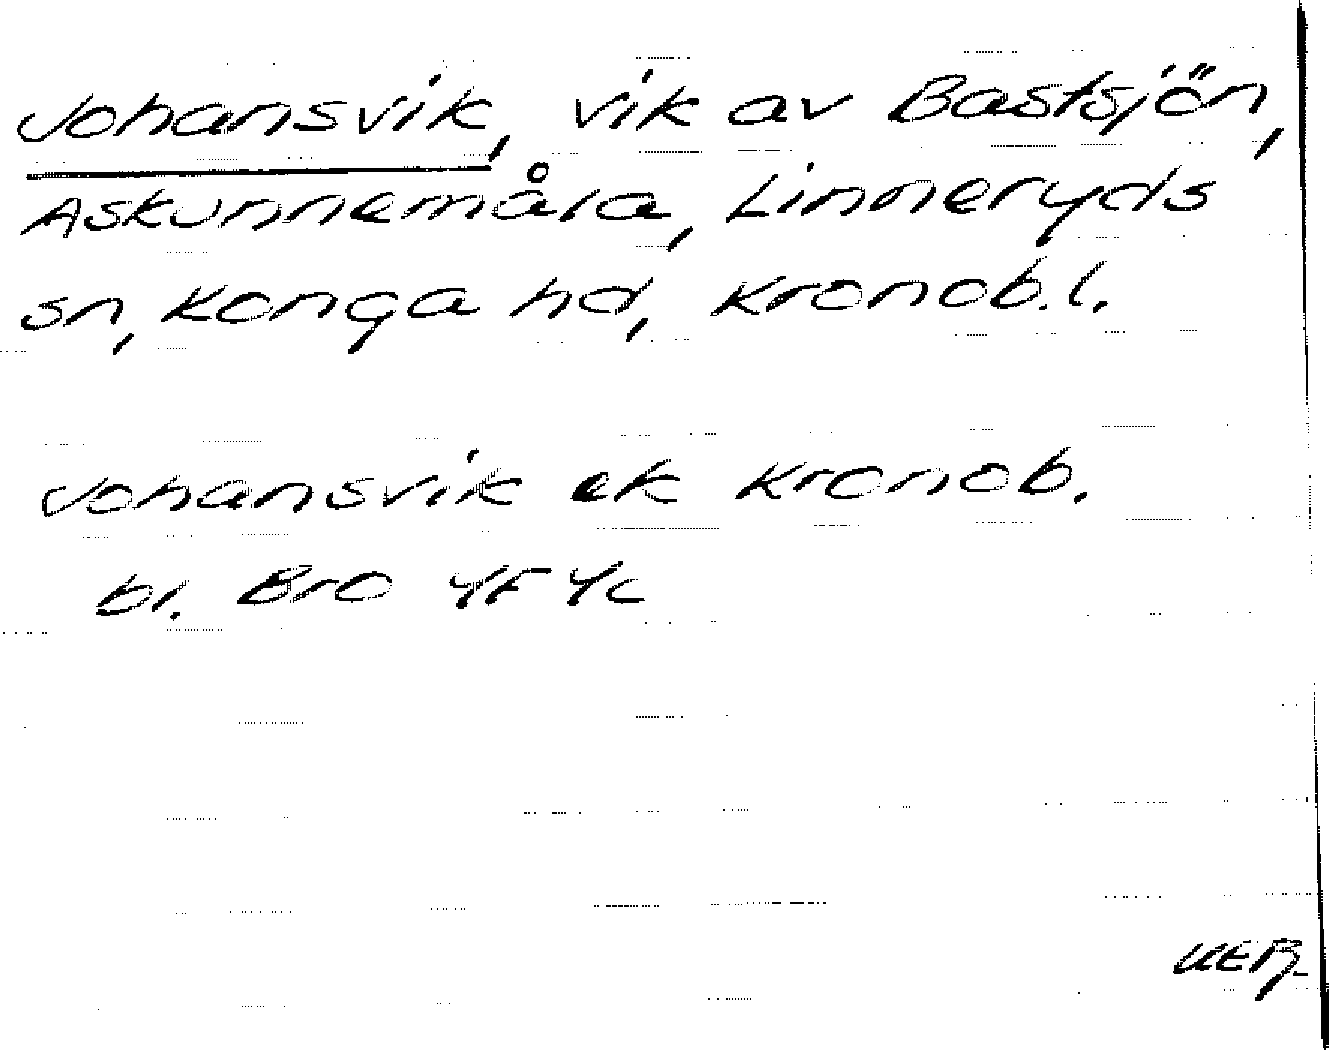 Johansvik, vik av Bastsjön,
Askunnemåla, Linneryds
sn, Konga hd, Kronob.l.
Johansvik ek Kronob.
bl. Bro 4F4c